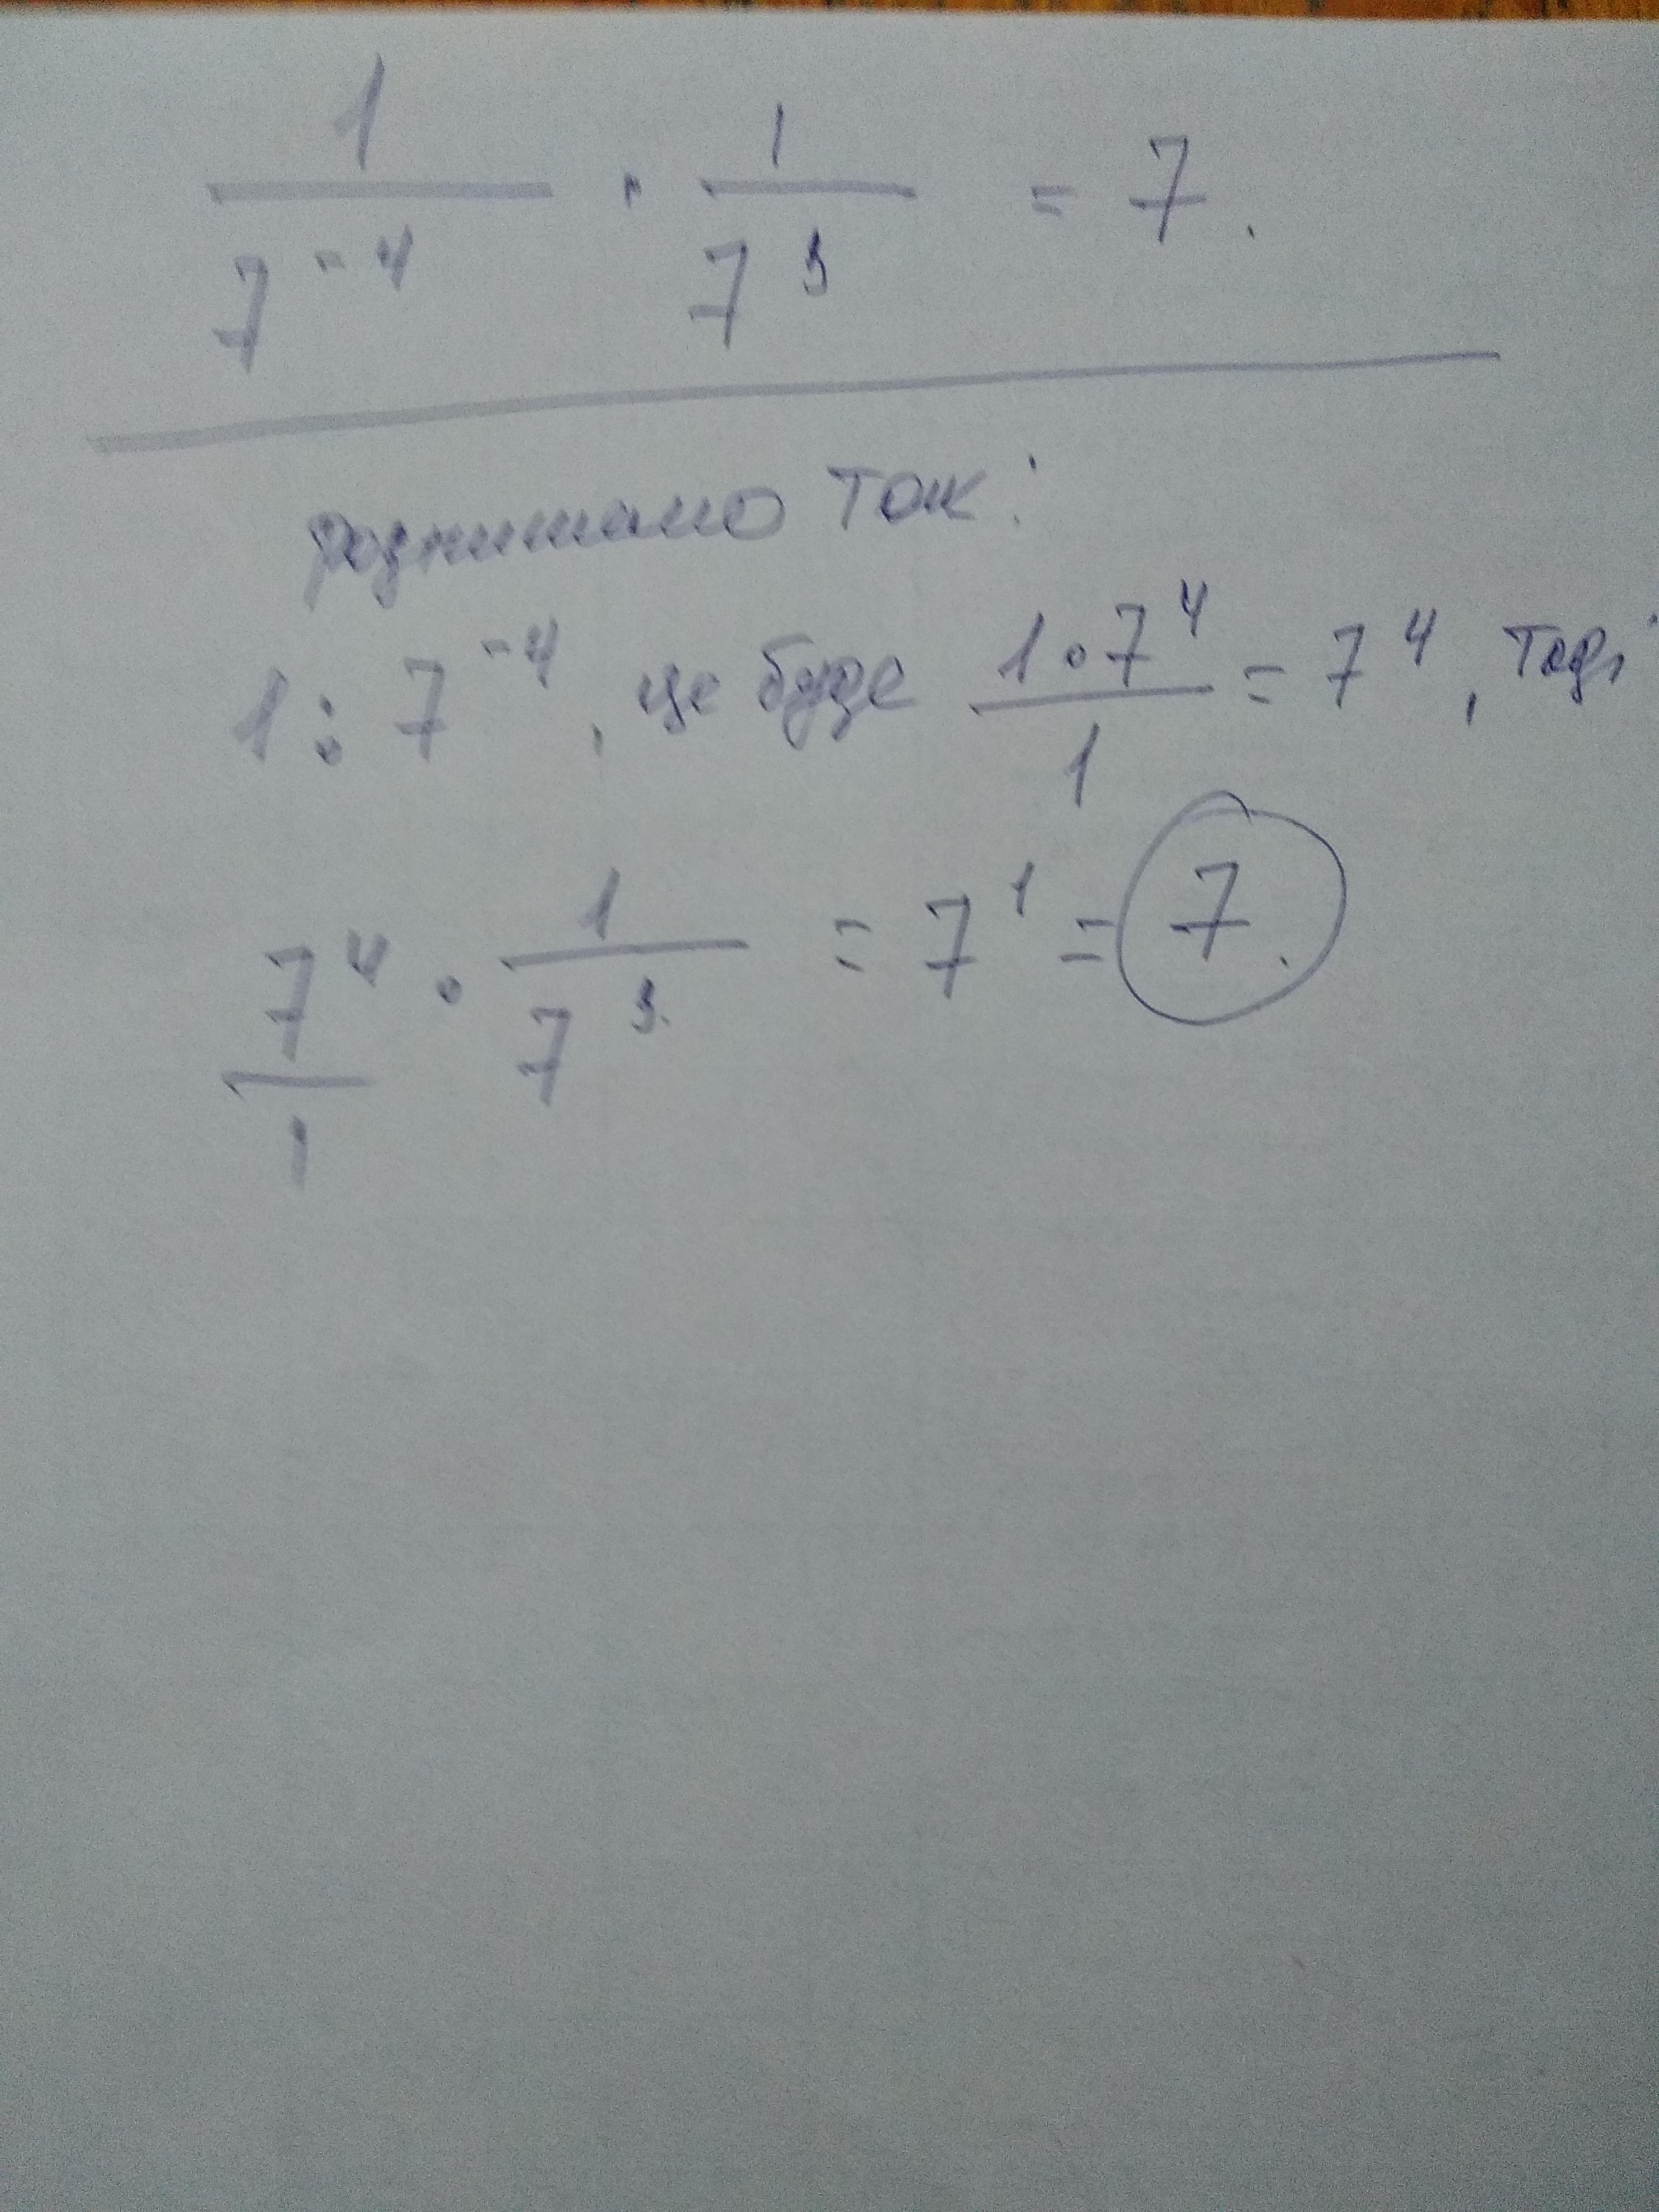 1/7⁻⁴ · 1/7³ = 7.
розпишемо так:
1 : 7⁻⁴, це буде (1·7⁴)/1 = 7⁴, тоді
7⁴/1 · 1/7³ = 7¹ = 7.